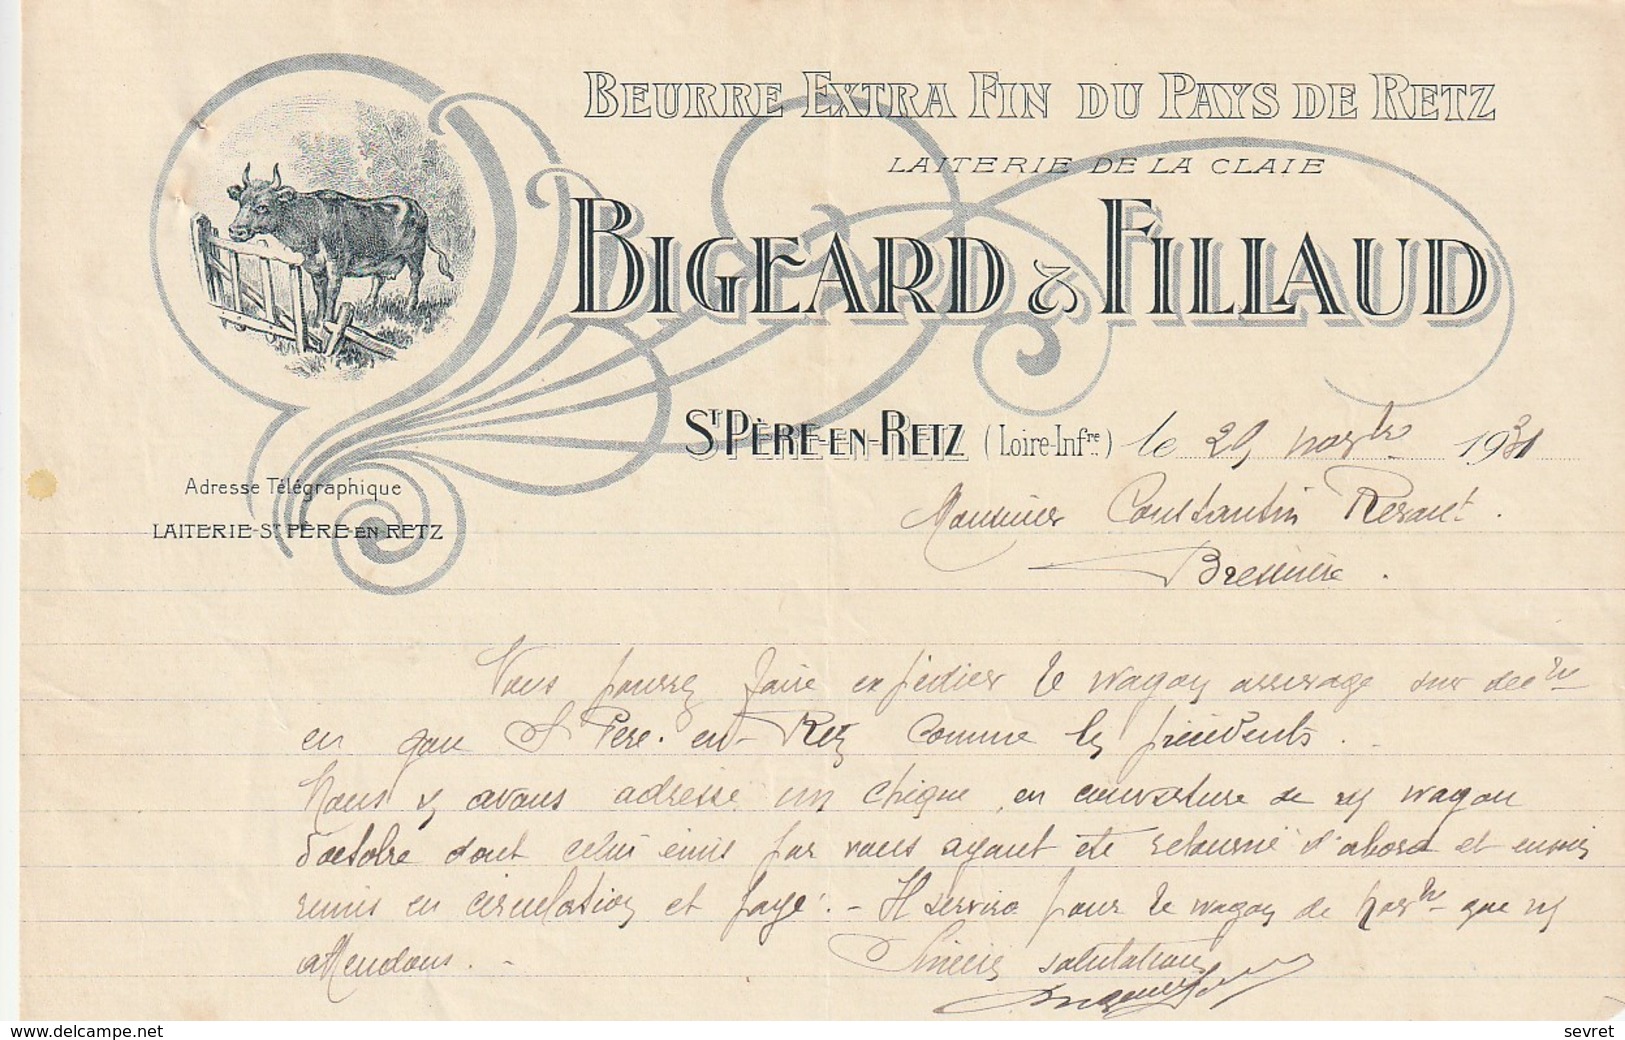 BEURRE EXTRA FIN DU PAYS DE RETZ
LAITERIE DE LA CLAIE
BIGEARD & FILLAUD
ST PÈRE-EN-RETZ (Loire-Infre) le 29 novbre 1931
Adresse Télégraphique
LAITERIE-ST PÈRE-EN RETZ
Monsieur Constantin
Vous pourrez faire expédier le wagon sur
en gare St Père-en-Retz comme les précédents.
Nous vs avons adressé un chèque en couverture de vs wagon
d'octobre dont celui émis par vous ayant été retourné d'abord et ensuite
remis en circulation et payé. - Il servira pour le wagon de novbre que ns
attendons. -
Sincères salutations
www.delcampe.net
sevret